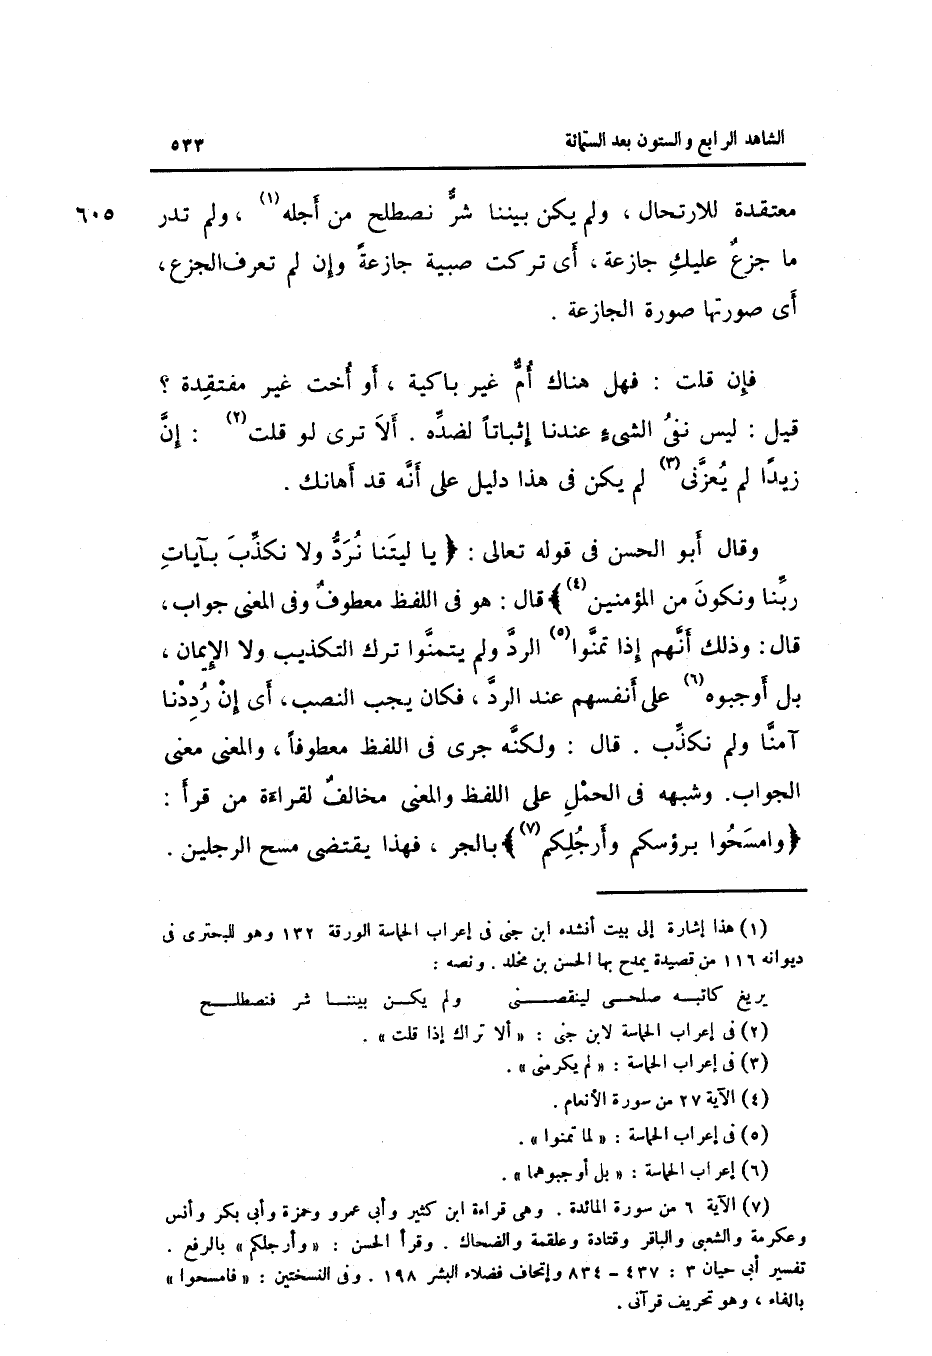 الشاهد الرابع والستون بعد الستمائة ٥٣٣
معتقدة للارتحال ، ولم يكن بيننا شرٌّ نصطلح من أَجله(١) ، ولم تدر ٦٠٥
ما جزعٌ عليكِ جازعة ، أَى تركت صبية جازعةً وإِن لم تعرف الجزع ،
أَى صورتها صورة الجازعة .
فإِن قلت : فهل هناك أُمٌّ غير باكية ، أَو أُخت غير مفتقِدة ؟
قيل : ليس نفىُ الشىءِ عندنا إِثباتاً لضدِّه . أَلاَ ترى لو قلت(٢) : إِنَّ
زيدًا لم يُعزَّنى(٣) لم يكن فى هذا دليل على أَنَّه قد أَهانك .
وقال أَبو الحسن فى قوله تعالى : ﴿ يا ليتَنا نُرَدُّ ولا نكذِّبَ بآياتِ
ربِّنا ونكونَ من المؤمنين(٤)﴾ قال : هو فى اللفظ معطوفٌ وفى المعنى جواب ،
قال : وذلك أَنَّهم إِذا تمنَّوا(٥) الردَّ ولم يتمنَّوا ترك التكذيب ولا الإِيمان ،
بل أَوجبوه(٦) على أَنفسهم عند الردِّ ، فكان يجب النصب ، أَى إِنْ رُدِدْنا
آمنَّا ولم نكذِّب . قال : ولكنَّه جرى فى اللفظ معطوفاً ، والمعنى معنى
الجواب . وشبهه فى الحمْلِ على اللفظ والمعنى مخالفٌ لقراءة من قرأَ :
﴿وامسَحُوا برؤسكم وأَرجُلِكم(٧)﴾ بالجر ، فهذا يقتضى مسح الرجلين .
(١) هذا إشارة إلى بيت أنشده ابن جنى فى إعراب الحماسة الورقة ١٣٢ وهو للبحترى فى
ديوانه ١١٦ من قصيدة يمدح بها الحسن بن مخلد . ونصه :
يريغ كاتبه صلحى لينقصنى ولم يكن بيننا شر فنصطلح
(٢) فى إعراب الحماسة لابن جنى : « ألا تراك إذا قلت » .
(٣) فى إعراب الحماسة : « لم يكرمنى » .
(٤) الآية ٢٧ من سورة الأنعام .
(٥) فى إعراب الحماسة : « لما تمنوا » .
(٦) إعراب الحماسة : « بل أوجبوهما » .
(٧) الآية ٦ من سورة المائدة . وهى قراءة ابن كثير وأبى عمرو وحمزة وأبى بكر وأنس
وعكرمة والشعبى والباقر وقتادة وعلقمة والضحاك . وقرأ الحسن : « وأرجلكم » بالرفع .
تفسير أبى حيان ٣ : ٤٣٧ - ٨٣٤ وإتحاف فضلاء البشر ١٩٨ . وفى النسختين : « فامسحوا »
بالفاء ، وهو تحريف قرآنى .